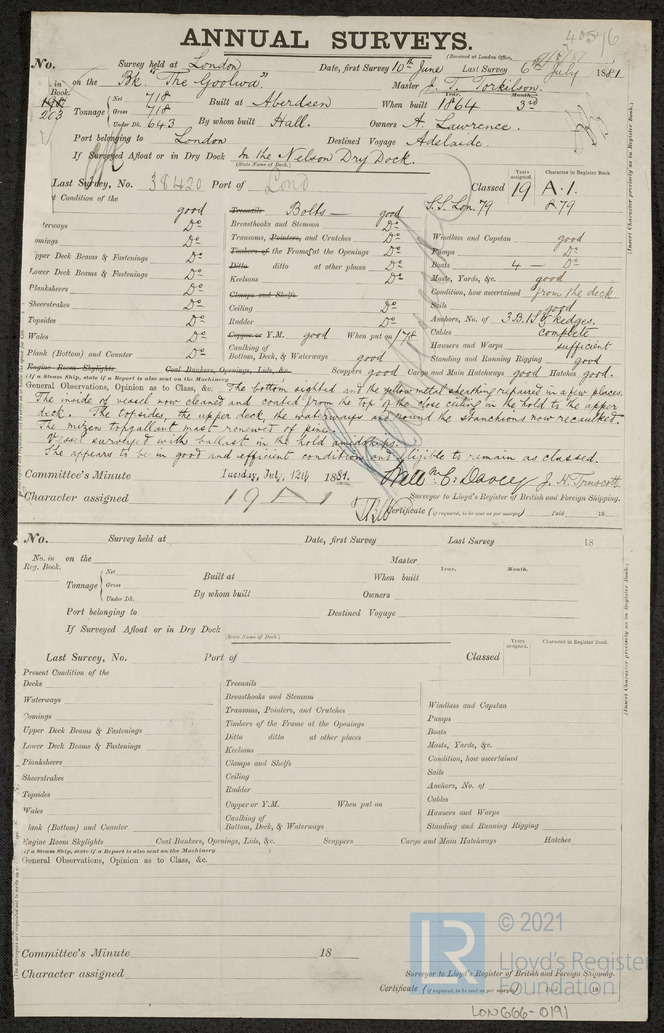 40576
ANNUAL SURVEYS.
(Received at London Office,
No. Survey held at London Date, first Survey 10th June Last Survey 6th July 1881
in on the Bk. "The Goolwa" Master J. T. Torkilson.
Book. Year. Month.
203 Tonnage Net 718 Built at Aberdeen When built 1864 3rd
Gross 718
Under Dk. 643 By whom built Hall. Owners A. Lawrence.
Port belonging to London Destined Voyage Adelaide.
If Surveyed Afloat or in Dry Dock In the Nelson Dry Dock.
(State Name of Dock.)
Last Survey, No. 38420 Port of Lond Classed Years assigned. 19 Character in Register Book. A.1.
S.S. Lon. 79 8.79
t Condition of the
good Treenails Bolts — good
terways Do Breasthooks and Stemson Do
omings Do Transoms, Pointers, and Crutches Do Windlass and Capstan good
pper Deck Beams & Fastenings Do Timbers of the Frame at the Openings Do Pumps Do
Lower Deck Beams & Fastenings Do Ditto ditto at other places Do Boats 4 — Do
Plansheers Do Keelsons Do Masts, Yards, &c. good
Sheerstrakes Do Clamps and Shelfs Condition, how ascertained from the deck
Topsides Do Ceiling Do Sails good
Wales Do Rudder Do Anchors, No. of 3 B. 1 S. 3 kedges.
Plank (Bottom) and Counter Do Copper or Y.M. good When put on 1/78 Cables complete
Caulking of Bottom, Deck, & Waterways good Hawsers and Warps sufficient
Standing and Running Rigging good
Engine Room Skylights Coal Bunkers, Openings, Lids, &c. Scuppers good Cargo and Main Hatchways good Hatches good.
(if a Steam Ship, state if a Report is also sent on the Machinery
General Observations, Opinion as to Class, &c. The bottom sighted and the yellow metal sheathing repaired in a few places.
The inside of vessel now cleaned and coated from the top of the close ceiling in the hold to the upper
deck. The topsides, the upper deck, the waterways and round the stanchions now recaulked.
The mizen topgallant mast renewed of pine.
Vessel surveyed with ballast in the hold amidships.
She appears to be in good and efficient condition and eligible to remain as classed.
Committee's Minute Tuesday, July 12th 1881. Willm C. Davey J. H. Truscott
Character assigned 19 A 1 Surveyor to Lloyd's Register of British and Foreign Shipping.
Certificate (if required, to be sent as per margin) Paid 18
(Insert Character precisely as in Register Book.)
No. Survey held at Date, first Survey Last Survey 18
No. in on the Master
Reg. Book. Year. Month.
Tonnage Net Built at When built
Gross
Under Dk. By whom built Owners
Port belonging to Destined Voyage
If Surveyed Afloat or in Dry Dock
(State Name of Dock.)
Last Survey, No. Port of Classed Years assigned. Character in Register Book.
Present Condition of the
Decks Treenails
Waterways Breasthooks and Stemson
Comings Transoms, Pointers, and Crutches Windlass and Capstan
Upper Deck Beams & Fastenings Timbers of the Frame at the Openings Pumps
Lower Deck Beams & Fastenings Ditto ditto at other places Boats
Plansheers Keelsons Masts, Yards, &c.
Sheerstrakes Clamps and Shelfs Condition, how ascertained
Topsides Ceiling Sails
Wales Rudder Anchors, No. of
lank (Bottom) and Counter Copper or Y.M. When put on Cables
Caulking of Bottom, Deck, & Waterways Hawsers and Warps
Standing and Running Rigging
Engine Room Skylights Coal Bunkers, Openings, Lids, &c. Scuppers Cargo and Main Hatchways Hatches
(if a Steam Ship, state if a Report is also sent on the Machinery
General Observations, Opinion as to Class, &c.
(Insert Character precisely as in Register Book.)
Committee's Minute 18
Character assigned Surveyor to Lloyd's Register of British and Foreign Shipping.
Certificate (if required, to be sent as per margin) Paid 18
LR © 2021
Lloyd's Register
Foundation
LON666-0191